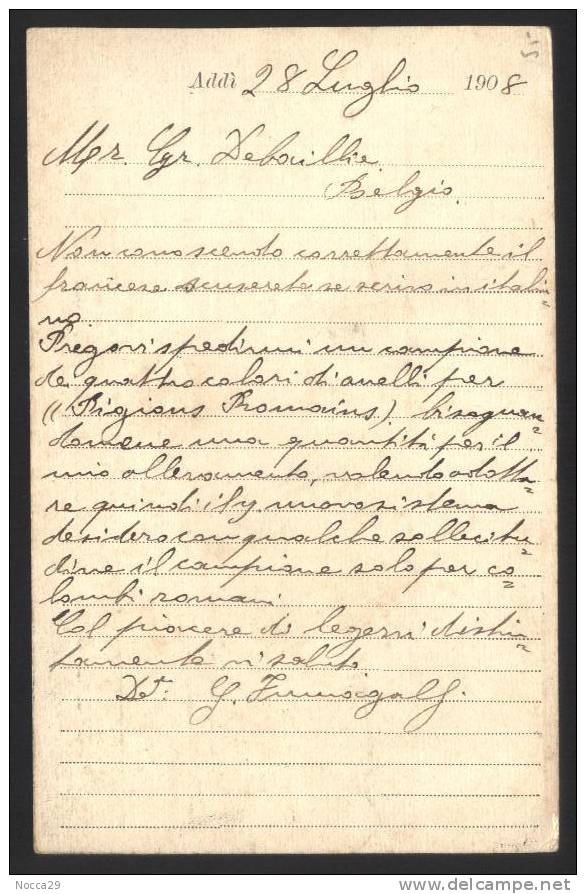 55
Addì 28 Luglio 1908
Mr. Gr. Debaillie
Belgio.
Non conoscendo correttamente il
francese scuserete se scrivo in itali=
no
Pregovi spedirmi un campione
dei quattro colori di anelli per
(Pigions Romains) bisognan=
domene una quantità per il
mio allevamento, volendo adotta=
re quindi il nuovo sistema
desidero con qualche sollecitu=
dine il campione solo per co=
lombi romani
Col piacere di legervi distin=
tamente vi saluto
Dt. G.
Nocca29
www.delcampe.net